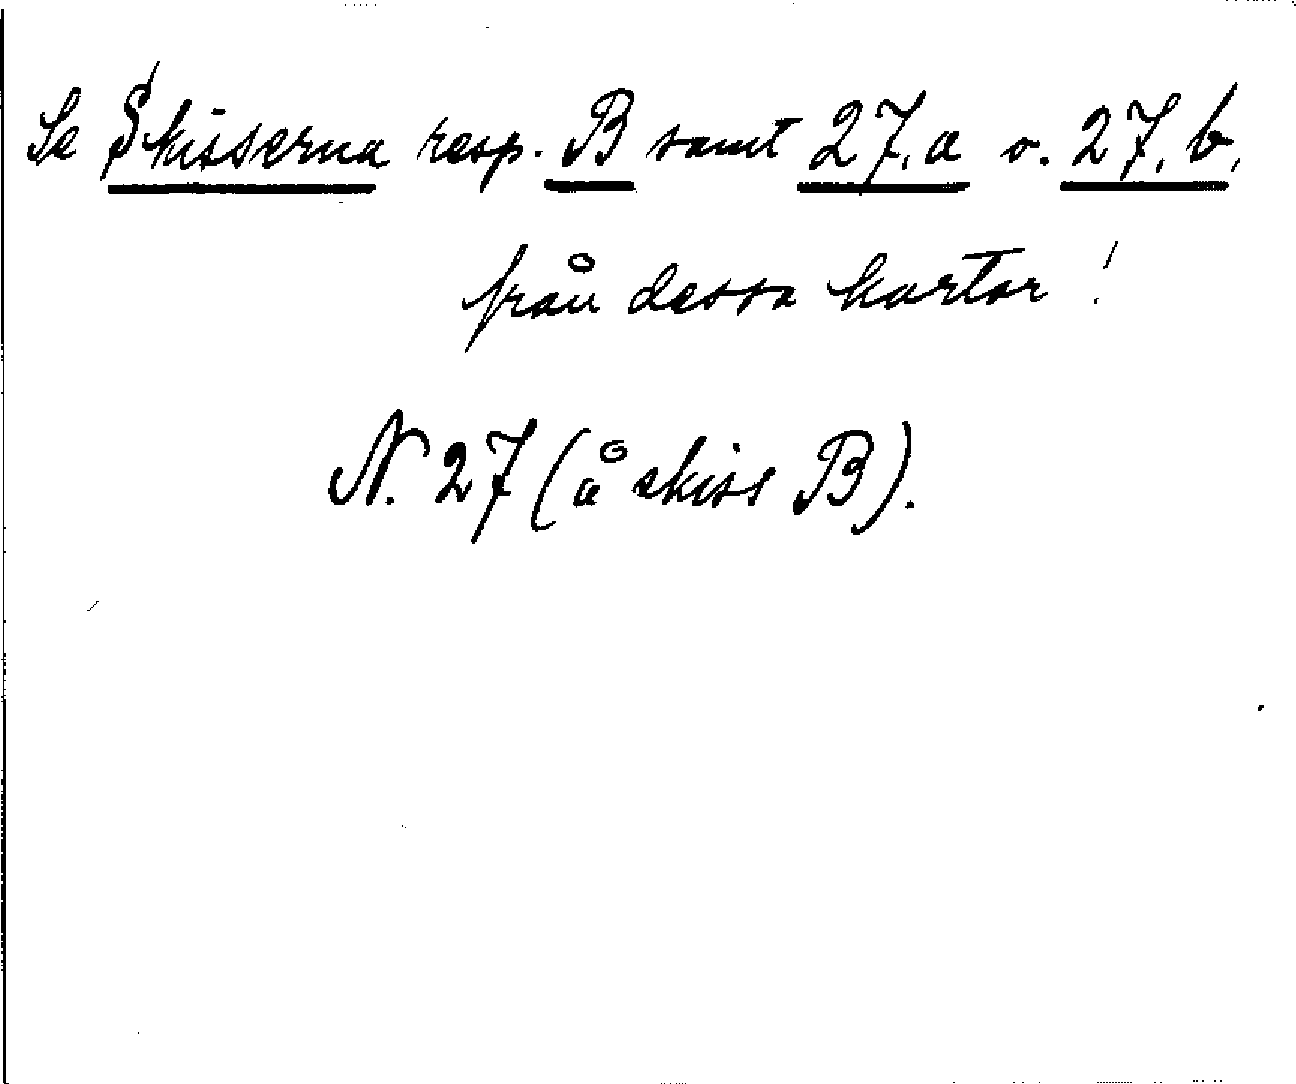 Se Skisserna resp. B samt 27, a o. 27, b,
från dessa kartor!
N. 27 (å skiss B).